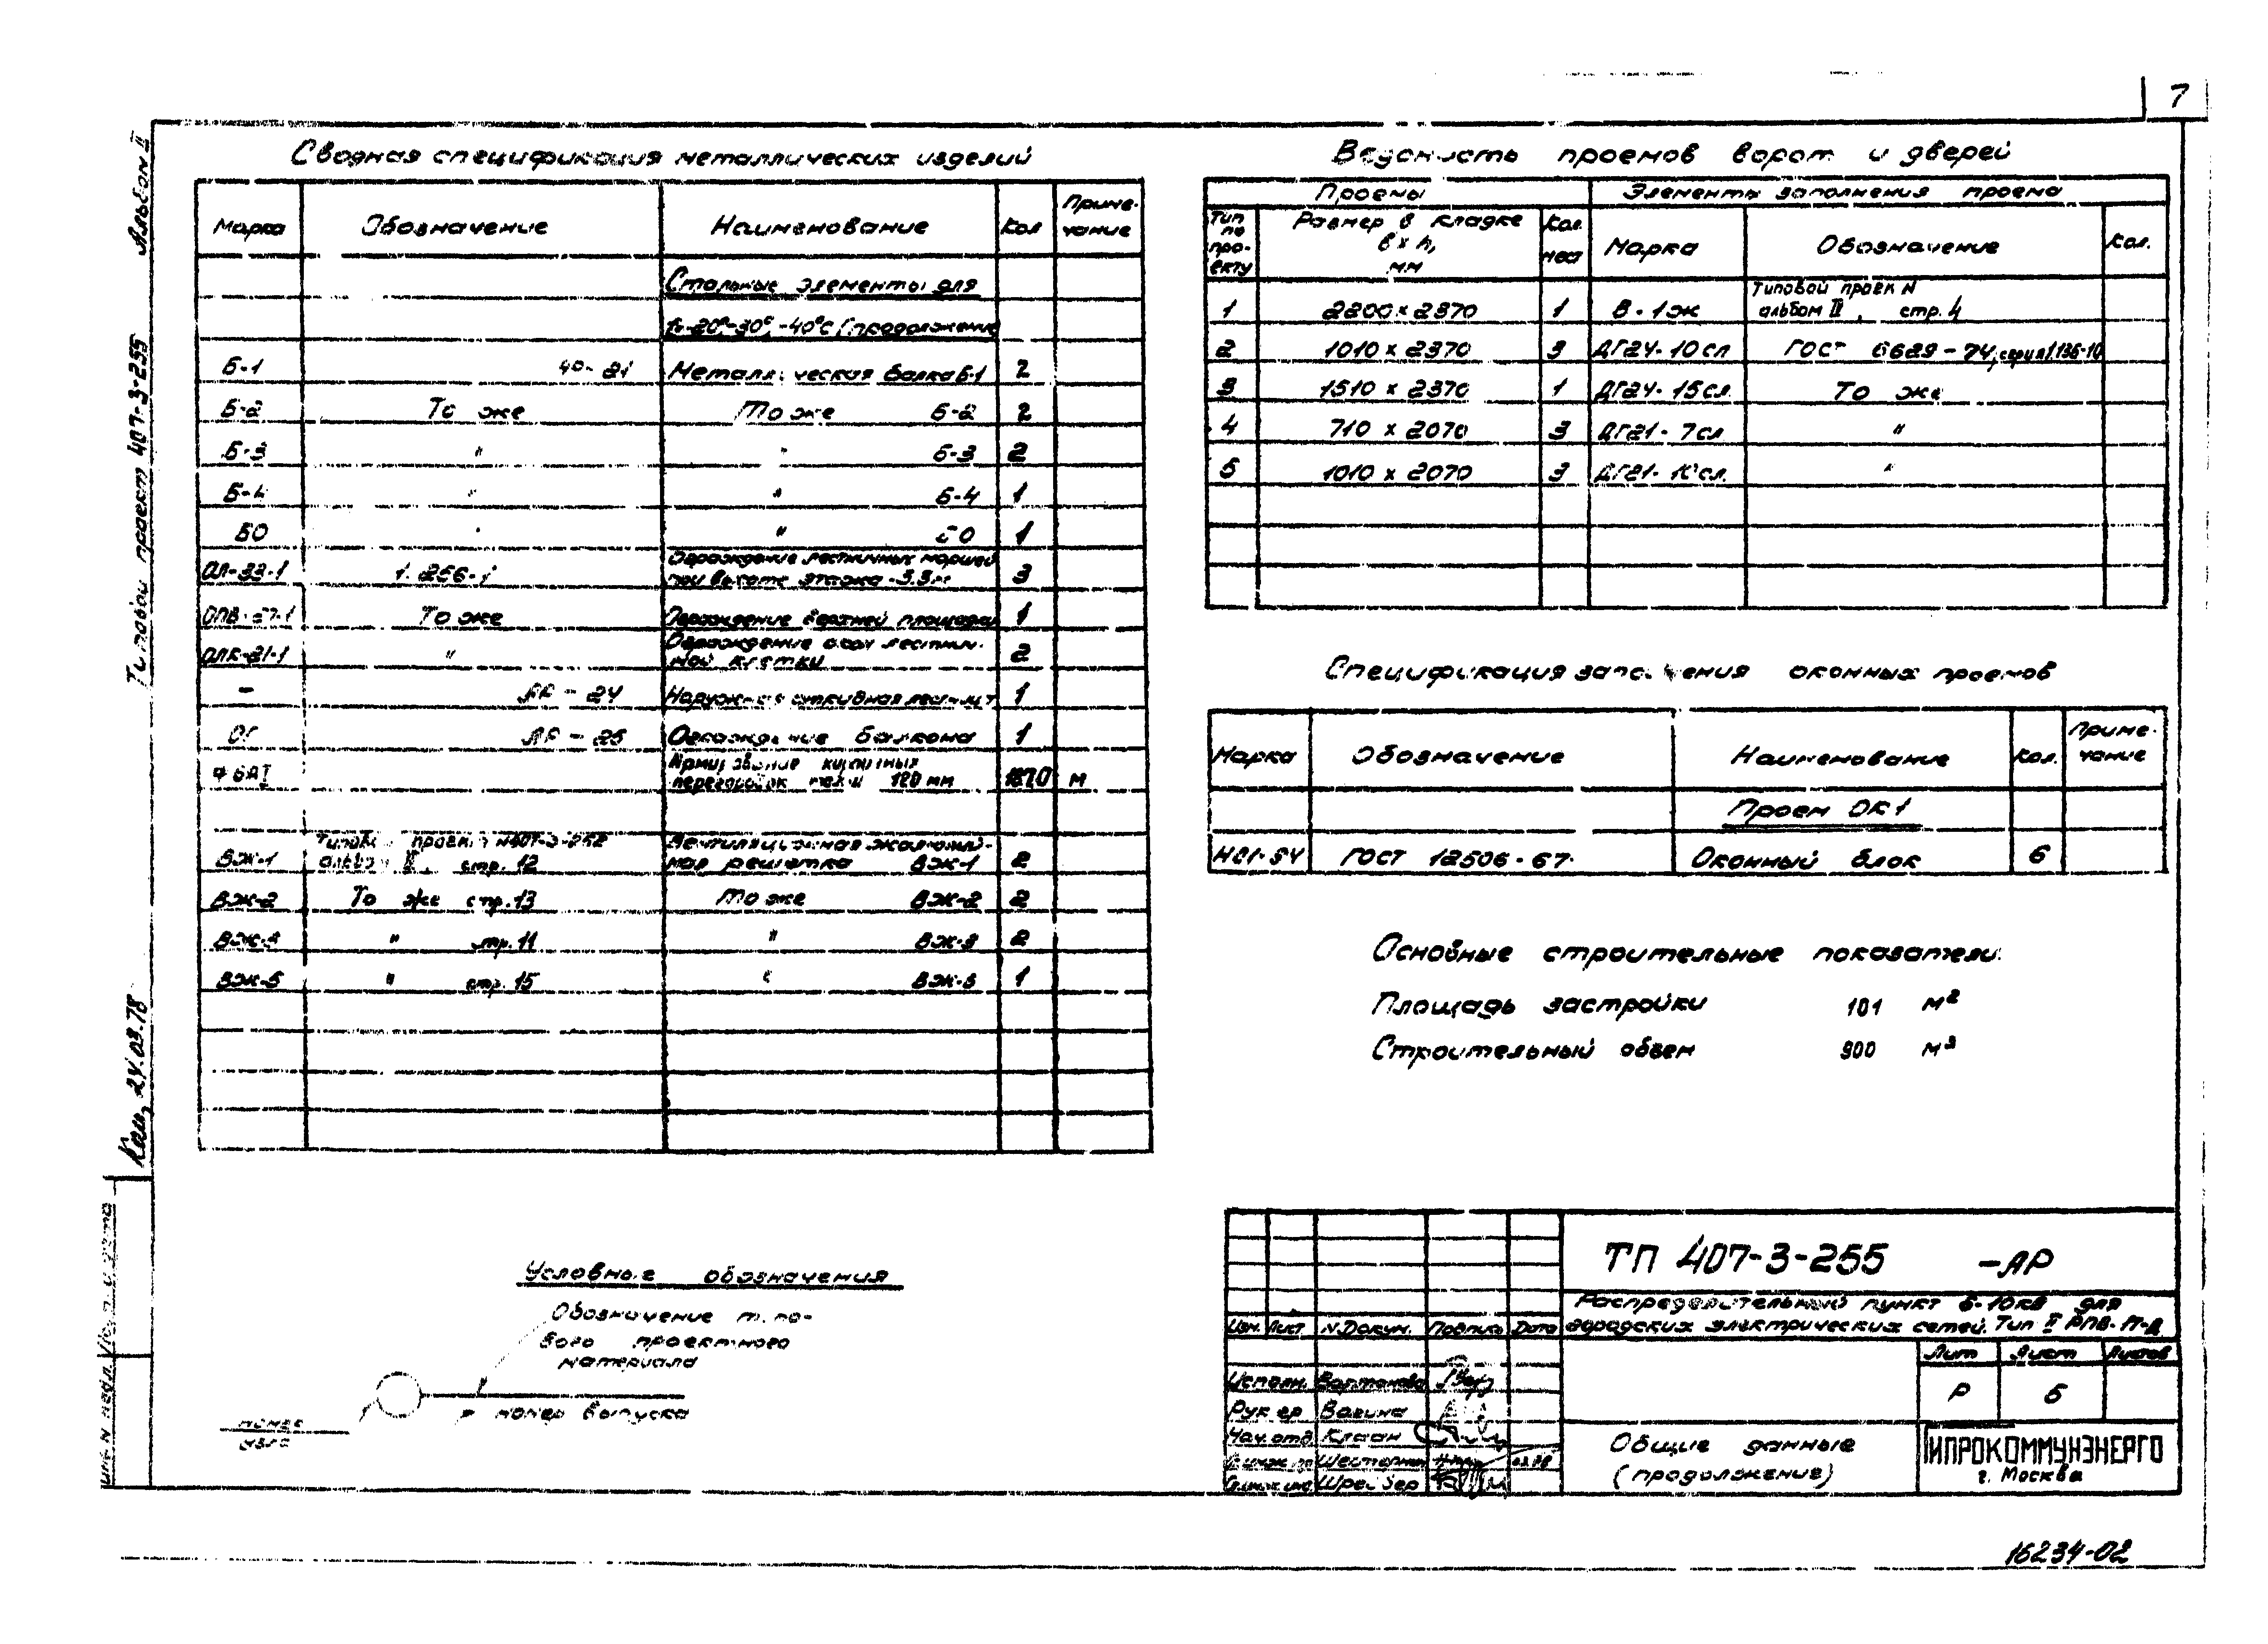 7
Альбом II
Типовой проект 407-3-255
24.03.78
Сводная спецификация металлических изделий
Марка Обозначение Наименование Кол Приме-
чание
Стальные элементы для
-20°-30°, -40°С (продолжение
Б-1 Металлическая балка Б-1 2
Б-2 То же То же Б-2 2
Б-3 " " Б-3 2
Б-4 " " Б-4 1
БО " " БО 1
Ограждение лестничных маршей
ОЛ-33-1 1.256-1 при высоте этажа -3.3м 3
То же Ограждение верхней площадки 1
Ограждение окон лестнич-
" ной клетки 2
— АР - 24 Наружная откидная 1
ОГ АР - 25 Ограждение балкона 1
Армирование кирпичных
перегородок толщ 120 мм 1870 м
Типовой проект N407-3-252 Вентиляционная жалюзий-
ВЖ-1 альбом II, стр. 12 ная решетка ВЖ-1 2
ВЖ-2 То же стр. 13 То же ВЖ-2 2
ВЖ-3 " стр. 11 " ВЖ-3 2
ВЖ-5 " стр. 15 " ВЖ-5 1
Ведомость проемов ворот и дверей
Проемы Элементы заполнения проема
Тип
по
про-
екту
Размер в кладке
в х h,
мм
Кол.
мест
Марка Обозначение Кол.
Типовой проек N
1 2200 x 2370 1 В-1ж альбом II, стр. 4
2 1010 x 2370 3 ДГ24-10сл ГОСТ 6629-74, серия 1.136-10
3 1510 x 2370 1 ДГ24-15сл. То же
4 710 x 2070 3 ДГ21-7сл "
5 1010 x 2070 3 ДГ21-10сл. "
Спецификация заполнения оконных проемов
Марка Обозначение Наименование Кол. Приме-
чание
Проем ОК1
ГОСТ 12506-67. Оконный блок 6
Основные строительные показатели:
Площадь застройки 101 м²
Строительный объем 900 м³
Условные обозначения
Обозначение типо-
вого проектного
материала
номер выпуска
номер
узла
ТП 407-3-255 -АР
Распределительный пункт 6-10кв для
городских электрических сетей. Тип II
Изм. Лист N Докум. Подпись Дата
Лит Лист Листов
Р 5
Исполн. Вартанова
Рук гр Вагина
Нач. отд. Клаан
Шрейбер
Общие данные
(продолжение)
ГИПРОКОММУНЭНЕРГО
г. Москва
16234-02